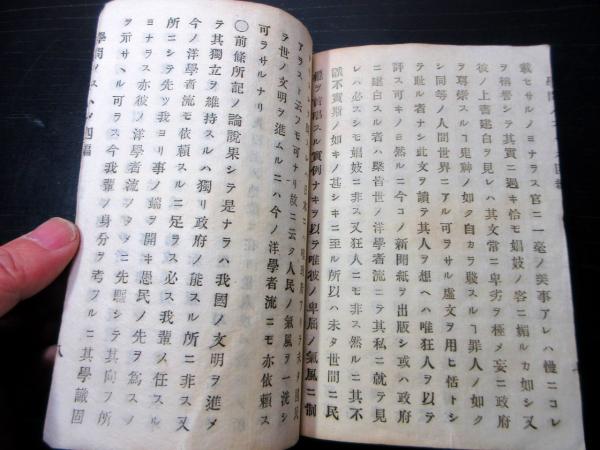 載セサルノミナラス官ニ一毫ノ美事アレハ慢ニコレ
ヲ稱譽シテ其實ニ過キ恰モ娼妓ノ客ニ媚ルカ如シ又
彼ノ上書建白ヲ見レハ其文常ニ卑劣ヲ極メ妄ニ政府
ヲ尊崇スルヿ鬼神ノ如ク自カラ賤スルヿ罪人ノ如ク
シ同等ノ人間世界ニアル可ラサル虚文ヲ用ヒ恬トシ
テ耻ル者ナシ此文ヲ讀テ其人ヲ想ヘハ唯狂人ヲ以テ
評ス可キノミ然ルニ今コノ新聞紙ヲ出版シ或ハ政府
ニ建白スル者ハ槩皆世ノ洋學者流ニテ其私ニ就テ見
レハ必スシモ娼妓ニ非ス又狂人ニモ非ス然ルニ其不
誠不實斯ノ如キノ甚シキニ至ル所以ハ未タ世間ニ民
權ヲ首唱スル實例ナキヲ以テ唯彼ノ卑屈ノ氣風ニ制
アラスト云フモ可ナリ故ニ云ク人民ノ氣風ヲ一洗シ
テ世ノ文明ヲ進ムルニハ今ノ洋學者流ニモ亦依頼ス
可ラサルナリ
〇前條所記ノ論説果シテ是ナラハ我國ノ文明ヲ進メ
テ其獨立ヲ維持スルハ獨リ政府ノ能スル所ニ非ス又
今ノ洋學者流モ依頼スルニ足ラス必ス我輩ノ任スル
所ニシテ先ツ我ヨリ事ノ端ヲ開キ愚民ノ先ヲ爲スノ
ミナラス亦彼ノ洋學者流ノタメニ先驅シテ其向フ所
ヲ示サヽル可ラス今我輩ノ身分ヲ考フルニ其學識固
學問ノスヽメ四編
八